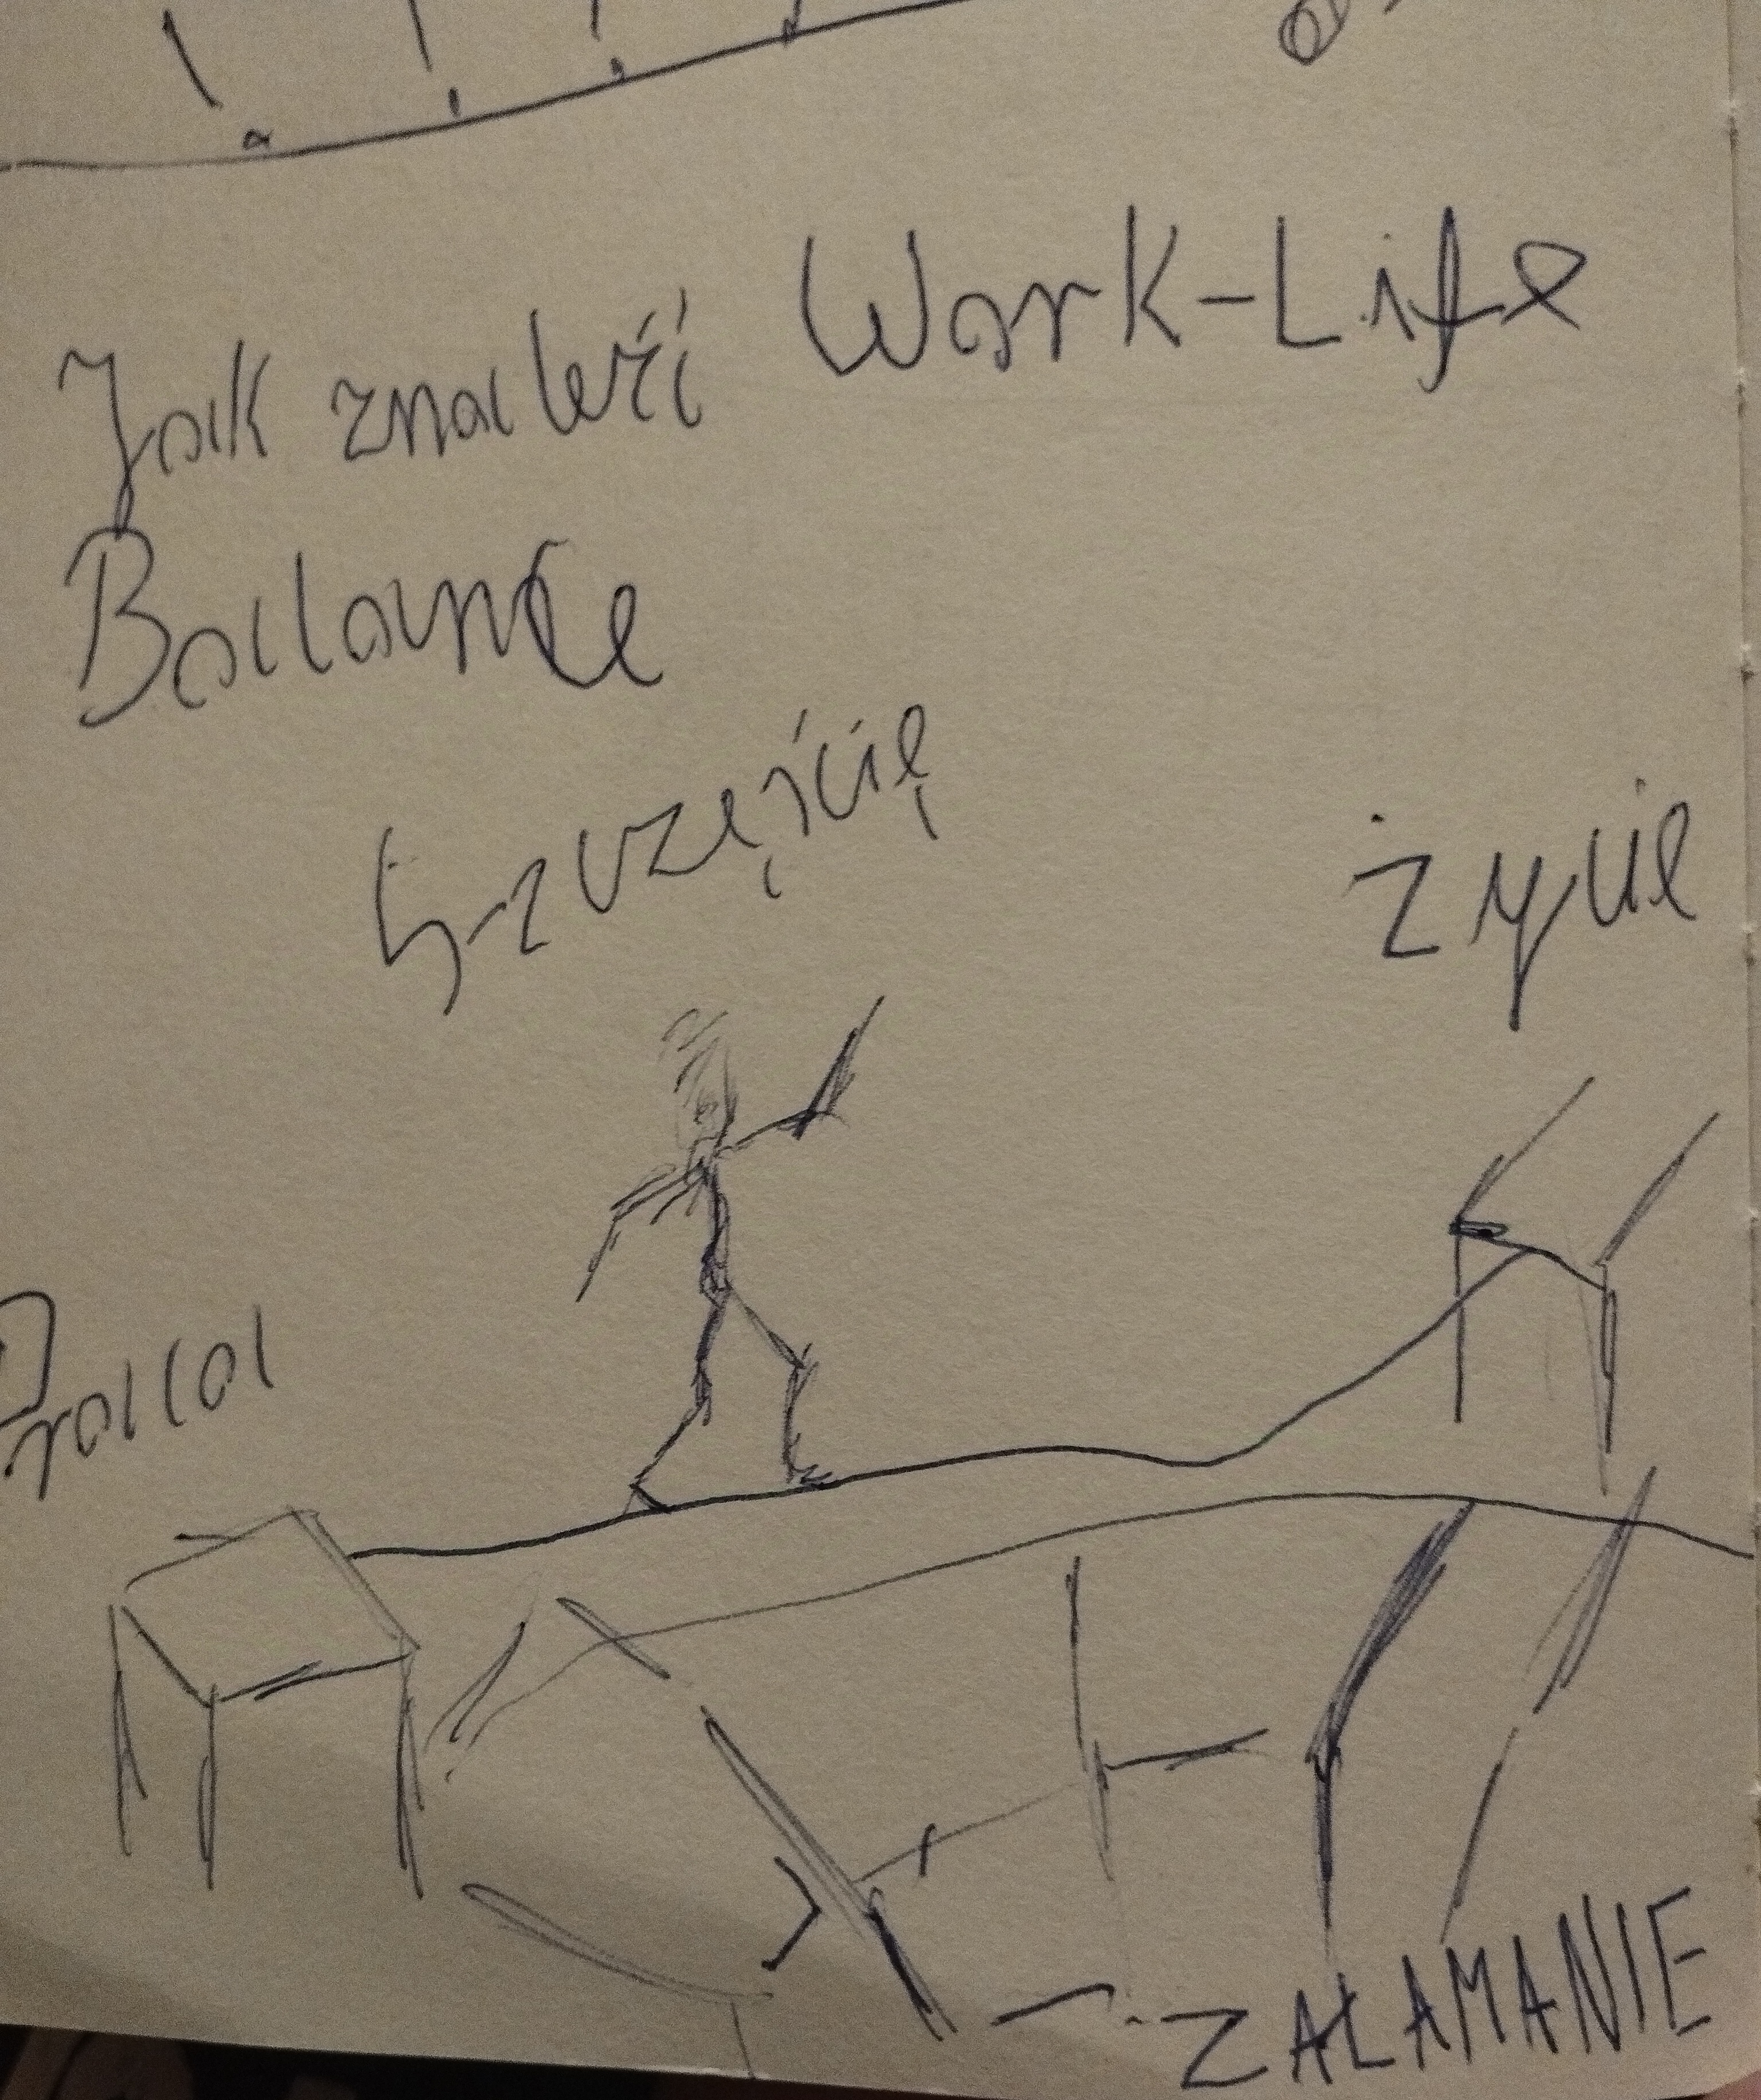 Jak znaleźć Work-Life
Balance
Szczęście
życie
Praca
ZAŁAMANIE